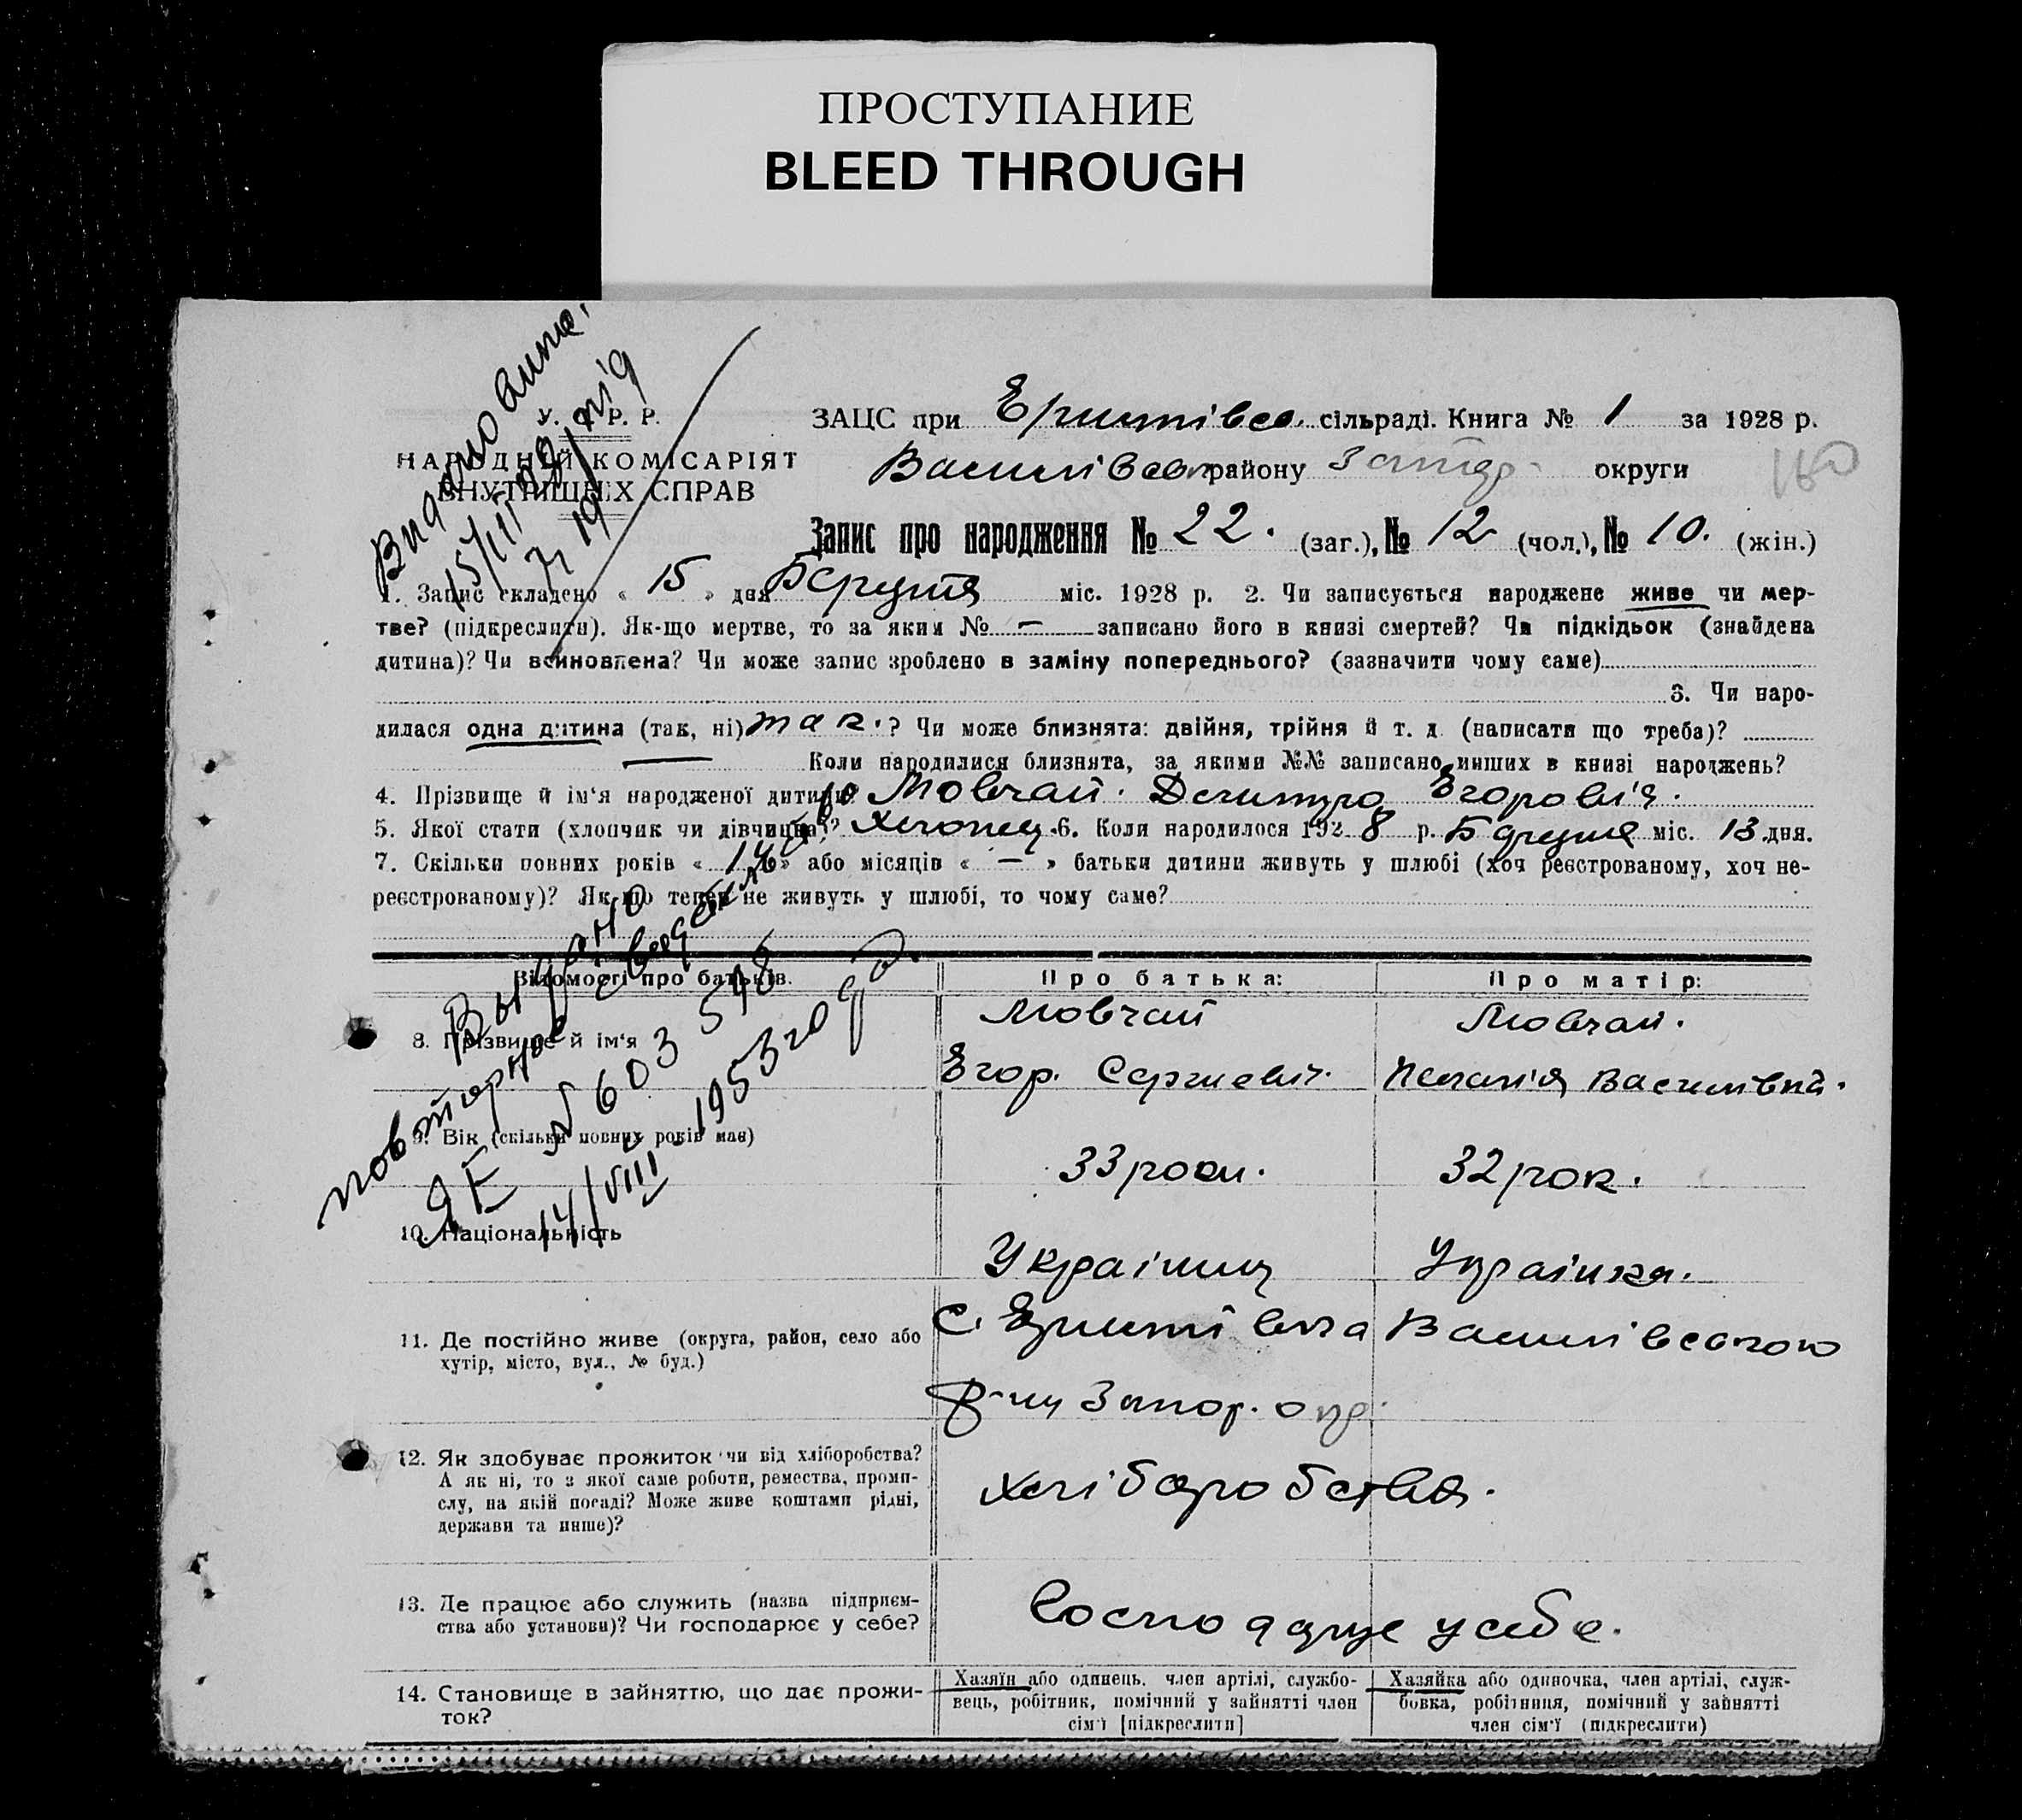 ПРОСТУПАНИЕ
BLEED THROUGH
У. С. Р. Р.
НАРОДНІЙ КОМІСАРІЯТ
ВНУТРІШНІХ СПРАВ
ЗАЦС при сільраді. Книга № 1 за 1928 р.
району округи
180
Запис про народження № 22. (заг.), № 12 (чол.), № 10. (жін.)
1. Запис складено « 15 » дня міс. 1928 р. 2. Чи записується народжене живе чи мер-
тве? (підкреслити). Як-що мертве, то за яким № — записано його в книзі смертей? Чи підкідьок (знайдена
дитина)? Чи всиновлена? Чи може запис зроблено в заміну попереднього? (зазначити чому саме)
3. Чи наро-
дилася одна дитина (так, ні) так. ? Чи може близнята: двійня, трійня й т. д. (написати що треба)?
— Коли народилися близнята, за якими №№ записано инших в книзі народжень?
4. Прізвище й ім'я народженої дитини? Мовчан. Егоровіч.
5. Якої стати (хлопчик чи дівчинка)? Хлопец. 6. Коли народилося 1928 р. міс. 13 дня.
7. Скільки повних років « 14 » або місяців « — » батьки дитини живуть у шлюбі (хоч реєстрованому, хоч не-
реєстрованому)? Як-що тепер не живуть у шлюбі, то чому саме?
Відомості про батьків. Про батька: Про матір:
8. Прізвище й ім'я
Мовчан Мовчан.
Егор. Сергиевіч. Пелагія Василівна.
9. Вік (скільки повних років має)
33 роки. 32 рок.
10. Національність
Українец Українка.
11. Де постійно живе (округа, район, село або
хутір, місто, вул., № буд.)
р-ну Запор. окр.
12. Як здобуває прожиток чи від хліборобства?
А як ні, то з якої саме роботи, ремества, проми-
слу, на якій посаді? Може живе коштами рідні,
держави та инше)?
Хліборобства.
13. Де працює або служить (назва підприєм-
ства або установи)? Чи господарює у себе?
Господарує у себе.
14. Становище в зайняттю, що дає прожи-
ток?
Хазяїн або одинець, член артілі, службо-
вець, робітник, помічний у зайнятті член
сім'ї [підкреслити]
Хазяйка або одиночка, член артілі, служ-
бовка, робітниця, помічний у зайнятті
член сім'ї (підкреслити)
Выдано
повторное свидетельство
ЯЕ № 603548
14/VIII - 1953 года.